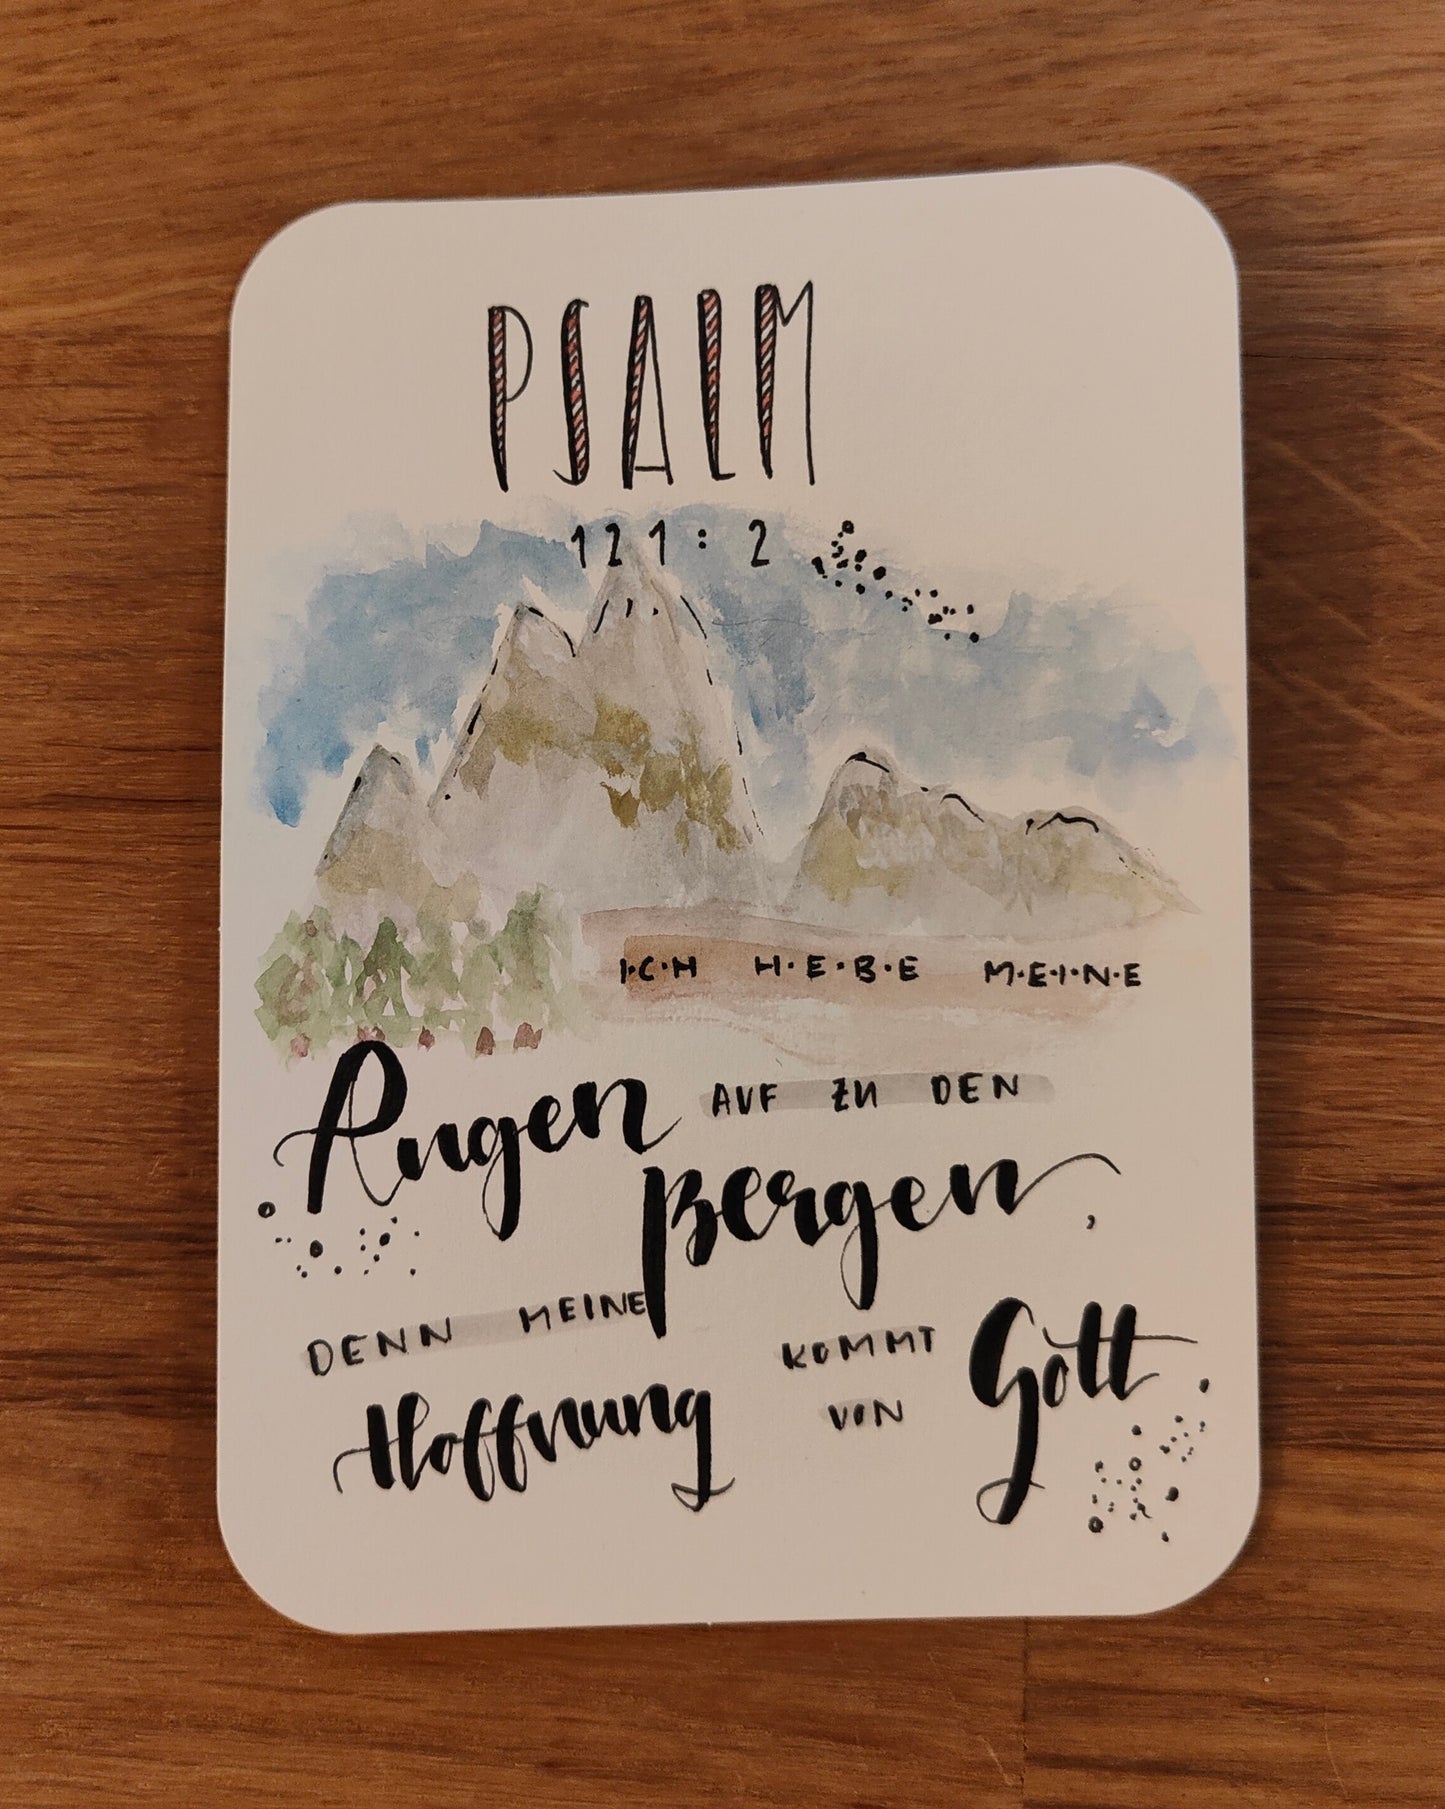 PSALM
121:2
I·C·H H·E·B·E M·E·I·N·E
Augen AUF ZU DEN
Bergen,
DENN MEINE
Hoffnung KOMMT
VON Gott